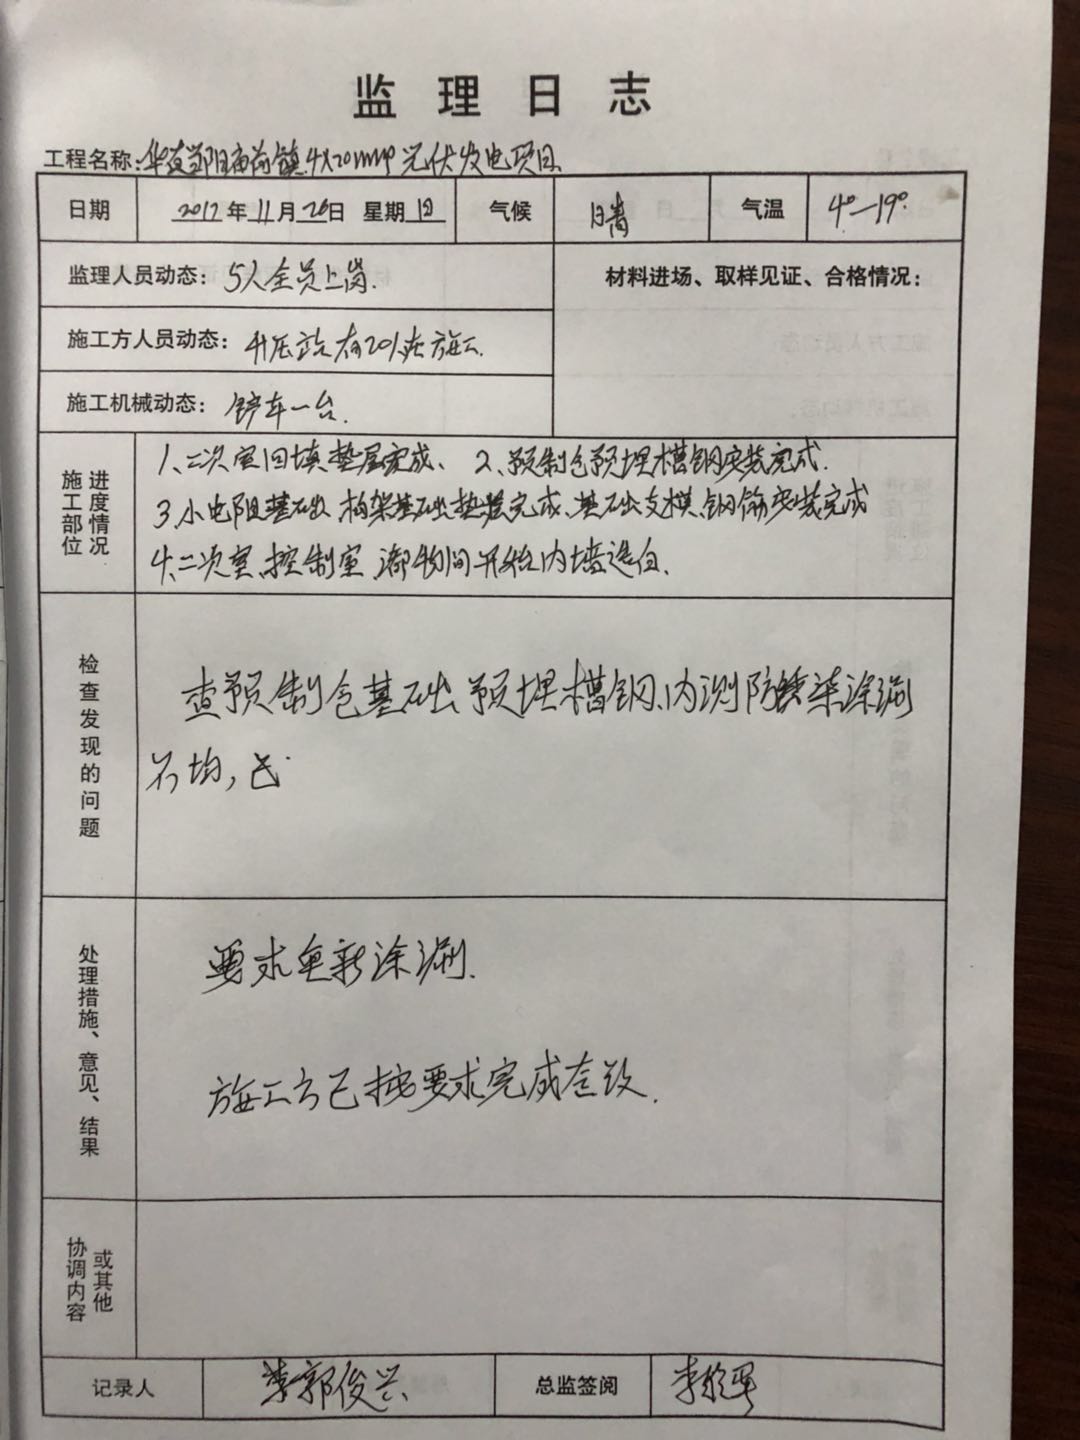 监理日志
工程名称：4X20MWP光伏发电项目
日期 2017年11月26日 星期日 气候 晴 气温 4°—19°
监理人员动态：5人全员上岗. 材料进场、取样见证、合格情况：
施工方人员动态：升压站有20人在施工.
施工机械动态：铲车一台.
施工部位
进度情况
1、二次室回填垫层完成、 2、预制仓预埋槽钢安装完成.
3、小电阻基础 构架基础垫层完成、基础支模、钢筋安装完成
4、二次室、控制室 间开始内墙
检查发现的问题
查预制仓基础预埋槽钢、内测防锈漆涂涮
不均,
处理措施、意见、结果
要求重新涂涮.
施工方已按要求完成整改.
协调内容
或其他
记录人 郭俊兴 总监签阅